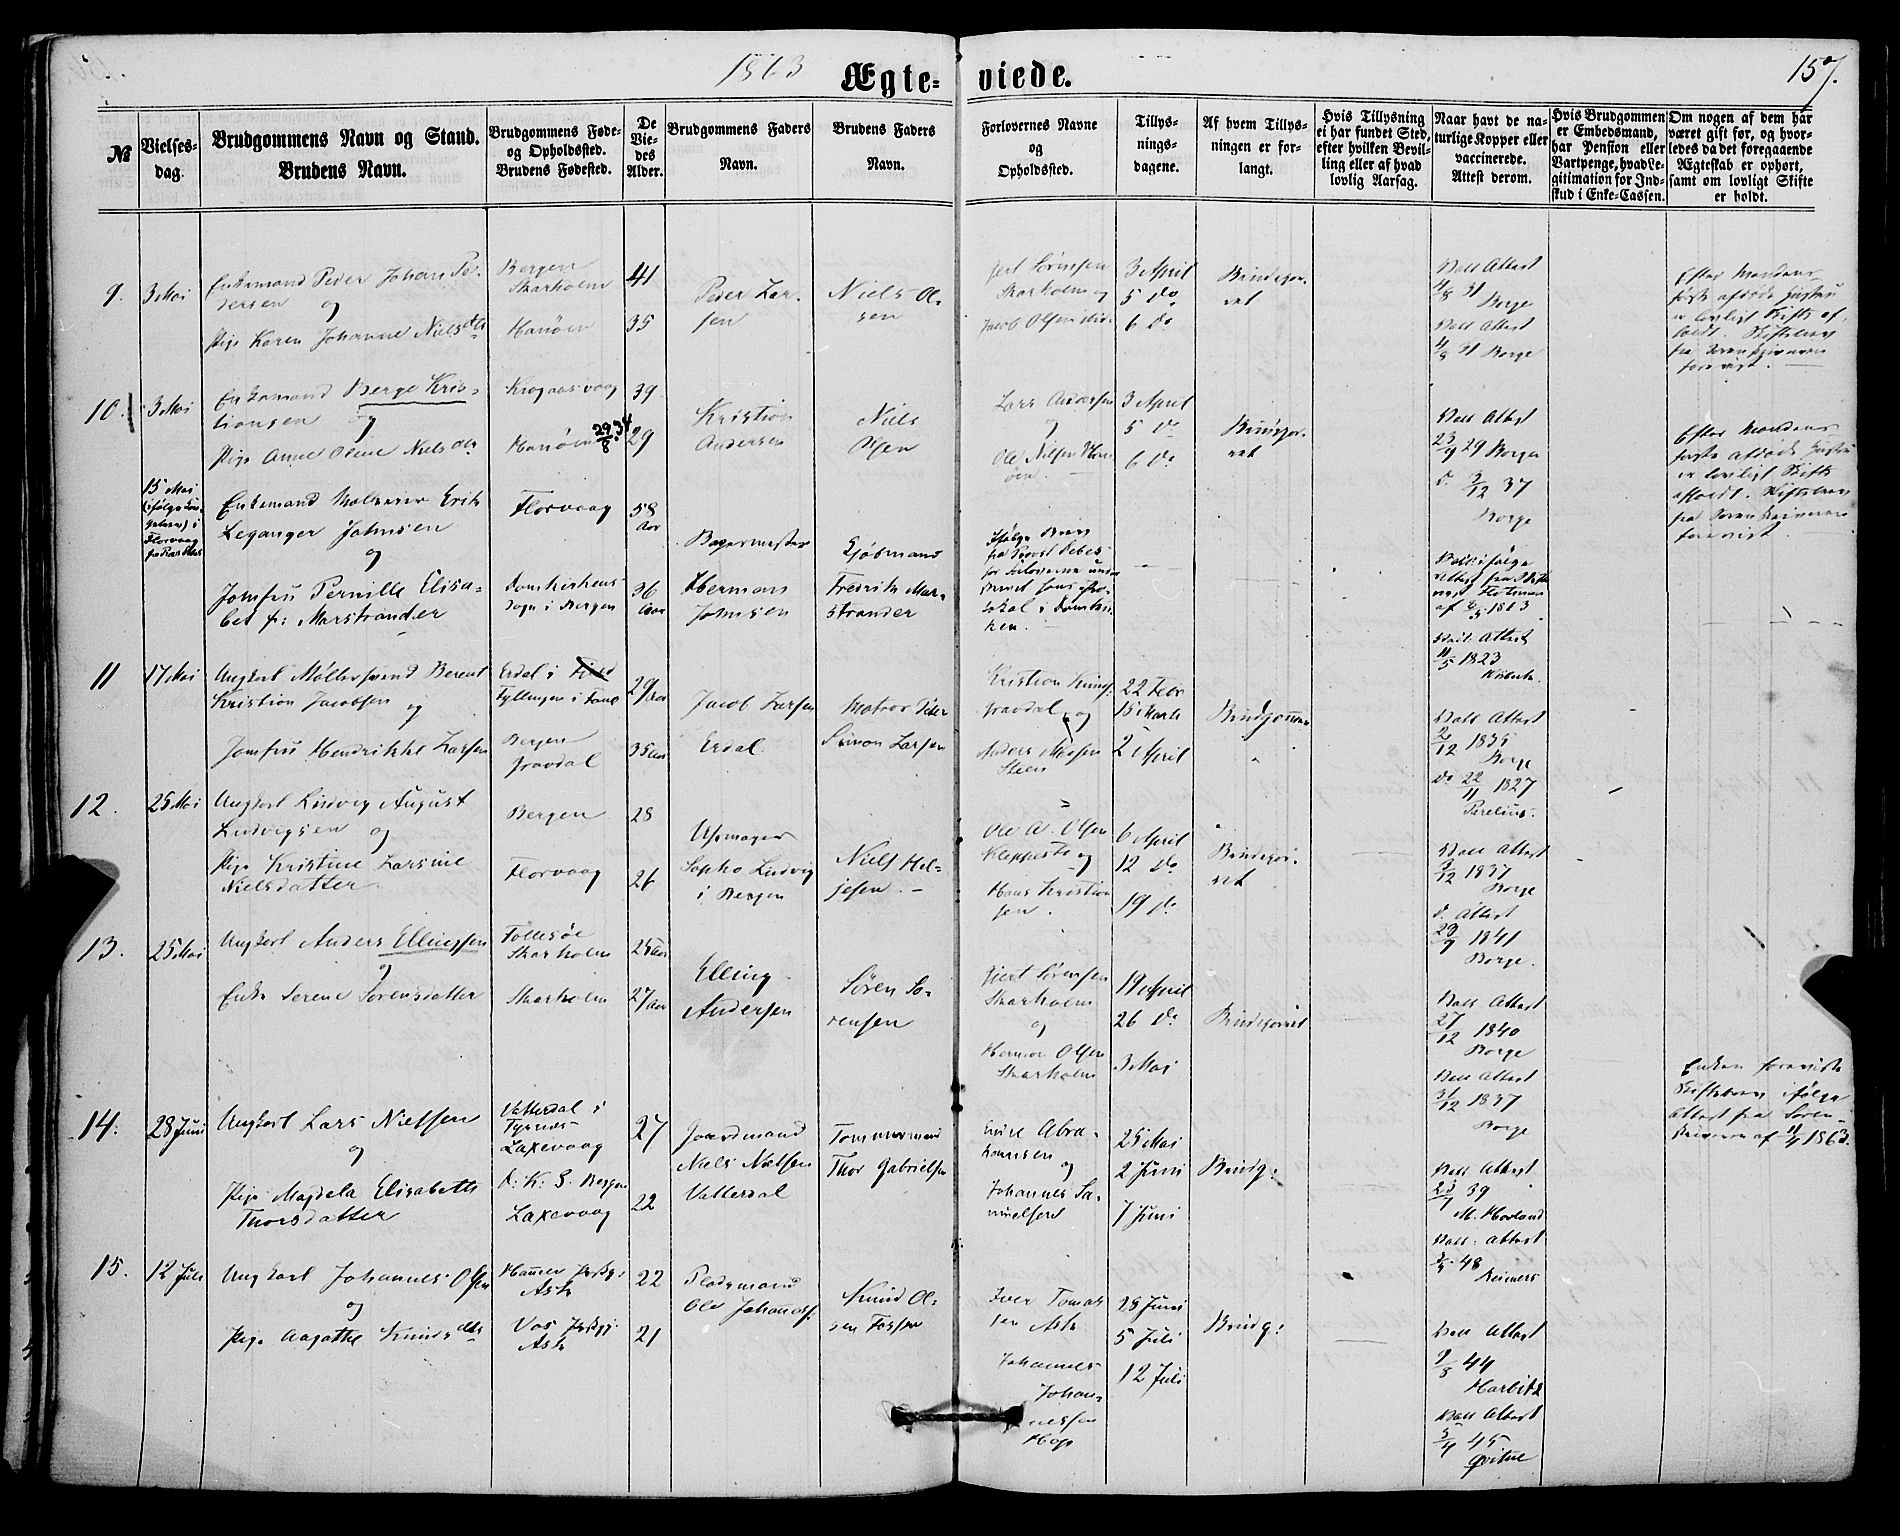 1863
Ægte-viede.
157.
№
Vielses-dag.
Brudgommens Navn og Stand.
Brudens Navn.
Brudgommens Føde-
og Opholdssted.
Brudens Fødested.
De
Vie-
des
Alder.
Brudgommens Faders
Navn.
Brudens Faders
Navn.
Forlovernes Navne
og
Opholdssted.
Tillys-
nings-
dagene.
Af hvem Tillys-
ningen er for-
langt.
Hvis Tillysning
ei har fundet Sted,
efter hvilken Bevil-
ling eller af hvad
lovlig Aarsag.
Naar havt de na-
turlige Kopper eller
vaccinerede.
Attest derom.
Hvis Brudgommen
er Embedsmand,
har Pension eller
Vartpenge, hvad Le-
gitimation for Ind-
skud i Enke-Cassen.
Om nogen af dem har
været gift før, og hvor-
ledes da det foregaaende
Ægteskab er ophørt,
samt om lovligt Skifte
er holdt.
9.
3 Mai
Enkemand Peder Johan Pe-
dersen og
Pige Karen Johanne Nielsdtr
Bergen
Skarholm
Hanøen
41
35
Peder Lar-
sen
Niels Ol-
sen
Gert Sørensen
Skarholm og
Jacob Olsen ibid.
3 April
5 do
6 do
Brudepar-
ret
Vacc Attest
4/8 31 Borge
Vacc Attest
4/8 31 Borge
Efter Mandens
første afdøde Hustru
er lovligt Skifte af-
holdt. Skiftebrev
fra Sorenskriveren
forevist.
10.
3 Mai
Enkemand Berge Kris-
tiansen og
Pige Anne Oline Nielsdtr
Krogaasvaag
Hanøen 29/8 34
39
29
Kristian
Andersen
Niels
Olsen
Lars Andersen
og
Ole Nilsen Han-
øen.
3 April
5 do
6 do
Brudepar-
ret
Vacc Attest
23/9 29 Borge
do 3/12 37
Borge
Efter Mandens
første afdøde Hustru
er lovligt Skifte
afholdt. Skiftebrev
fra Sorenskriveren
forevist.
15 Mai
i
Florvaag
Enkemand Erik
Leganger Jahnsen
og
Jomfru Pernille Elisa-
bet f: Marstrander
Florvaag
Domkirkens
Sogn i Bergen
58
Aar
36
Aar
Bagermester
Herman
Jahnsen
Kjøbmand
Fredrik Mar-
strander
Ifølge Brev
fra Provst
i Domkir-
ken.
af 1813
Vacc: Attest
11/5 1823
11
17 Mai
Ungkarl Møllersvend Berent
Kristian Jacobsen og
Jomfru Hendrikke Larsen
Erdal i
Fyllingen i Fane
Bergen
Gravdal
29 Aar
35 Aar
Jacob Larsen
Erdal.
Matros Peder
Simon Larsen
Kristian
Gravdal og
Anders
Steen
22 Febr
15 Marts
2 April
Brudgommen
"
Vacc Attest
2/12 1835
Borge
do 22/11 1827
12.
25 Mai
Ungkarl Ludvig August
Ludvigsen og
Pige Kristine Larsine
Nielsdatter.
Bergen
Florvaag
28
26
Uhrmager
Ludvig
i Bergen
Niels Hel-
jesen.
Ole A. Olsen
Kleppestø og
Hans Kristian-
sen.
6 April
12 do
19 do
Brudepar-
ret
Vacc Attest
3/12 1837
Borge
do Attest
29/9 1841
Borge.
13.
25 Mai
Ungkarl Anders Ellingsen
og
Enke Serene Sørensdatter
Follesøe
Skarholm
Skarholm
25 Aar
27 Aar
Elling
Andersen
Søren Sø-
rensen
Gjert Sørensen
Skarholm
og
Herman Olsen
Skarholm
19 April
26 do
3 Mai
Brudeparret
Vacc Attest
27/12 1840
Borge
Vacc Attest
31/12 1837
Borge
Enken foreviste
Skiftebrev ifølge
Attest fra Soren-
skriveren af 11/4 1863.
14.
28 Juni
Ungkarl Lars Nielsen
og
Pige Magdela Elisabeth
Thorsdatter
Vatterdal i
Tysnes
Laxevaag
D: K: S. Bergen
Laxevaag
27
22
Gaardmand
Niels Nielsen
Vatterdal
Tømmermand
Thor Gabrielsen
Endre Abra-
hamsen
og
Johannes Sa-
muelsen
25 Mai
2 Juni
7 Juni
Brudg:
Vacc Attest
23/7 39
M. Hovland
Vacc: Attest
3/9 48
Reimers
15.
12 Juli
Ungkarl Johannes Olsen
og
Pige Aagathe Knudsdtr
Hammer Præstg:
Ask
Vos Præstgj:
Ask
22
21
Pladsmand
Ole Johannes.
Knud Ol-
sen
Iver Tomas-
sen Ask
Johannes
Johan-
nessen
Hop
28 Juni
5 Juli
12 Juli
Brudg:
Vacc Attest
9/8 44
Harbitz
Vacc Attest
5/4 45